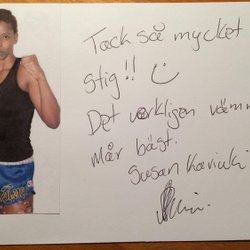 Tack så mycket
stig!! ☺
Det verkligen värm
mår bäst.
Susan Kavuki